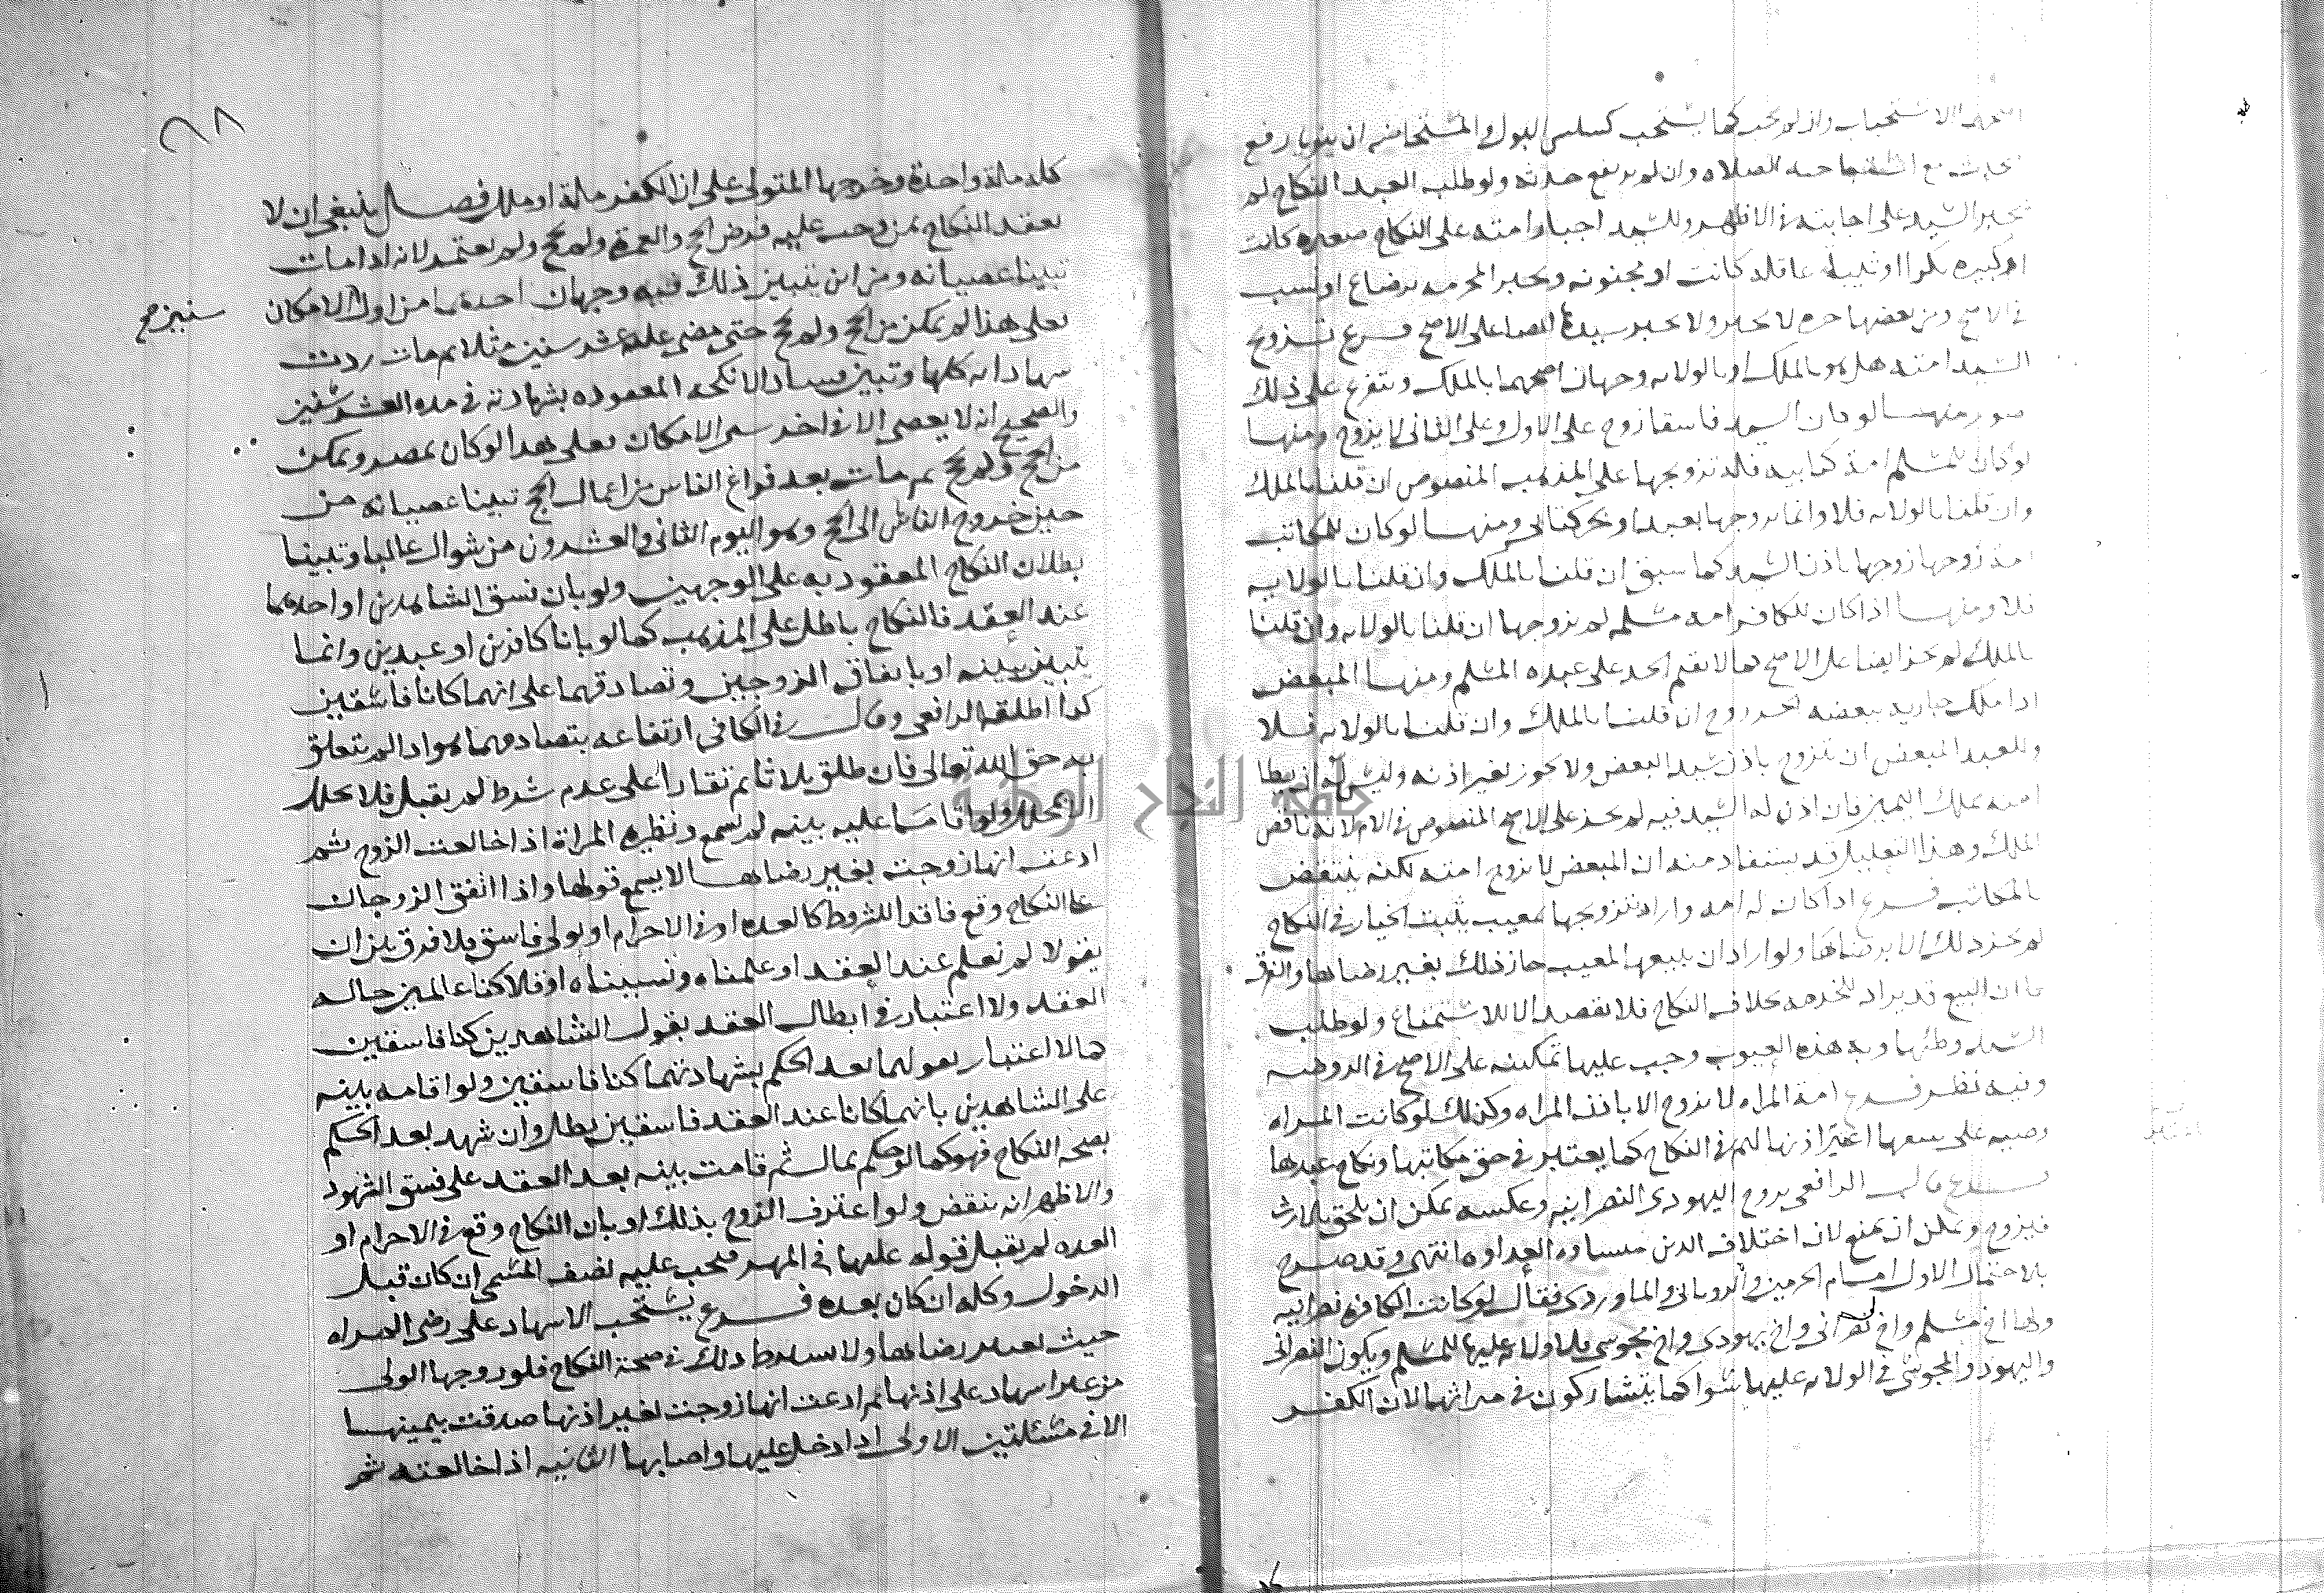 الاستحباب وان لم يجب كما يستحب لسلس البول والمستحاضة ان ينويا رفع
الحدث مع استباحه الصلاه وان لم يرتفع حدثه ولو طلب العبد النكاح لم
يجبر السيد على اجابته في الاظهر وللسيد اجبار امته على النكاح صغيره كانت
او كبيره بكرا او ثيبا عاقله كانت او مجنونه ويجبر المحرمه برضاع او نسب
في الاصح ومن بعضها حره لا يجبر ولا يجبر سيدها ايضا على الاصح فرع تزويج
السيد امته هل هو بالملك او بالولايه وجهان اصحهما بالملك ويتفرع على ذلك
صور منها لو كان السيد فاسقا زوج على الاول وعلى الثاني لا يزوج ومنها
لو كان لمسلم امة كتابيه فله تزويجها على المذهب المنصوص ان قلنا بالملك
وان قلنا بالولايه فلا وانما يزوجها بعبد او بحر كتابي ومنها لو كان للمكاتب
امة زوجها باذن السيد كما سبق ان قلنا بالملك وان قلنا بالولايه
فلا ومنها اذا كان للكافر امه مسلمه لم يزوجها ان قلنا بالولايه وان قلنا
بالملك لم يجز ايضا على الاصح كما لا يقيم الحد على عبده المسلم ومنها المبعض
اذا ملك جاريه ببعضه الحر زوج ان قلنا بالملك وان قلنا بالولايه فلا
وللعبد المبعض ان يتزوج باذن سيد البعض ولا يجوز بغير اذنه وليس له ان يطا
امته بملك اليمين فان اذن له السيد فيه لم يجز على الاصح المنصوص في الام لانه ناقص
الملك وهذا التعليل قد يستفاد منه ان المبعض لا يزوج امته لكنه ينتقض
بالمكاتب فرع اذا كان له امه واراد تزويجها بمعيب يثبت الخيار في النكاح
لم يجز ذلك الا برضاها ولو اراد ان يبيعها لمعيب جاز ذلك بغير رضاها والفرق
ان البيع قد يراد للخدمه بخلاف النكاح فلا يقصد الا للاستمتاع ولو طلب
السيد وطئها وبه هذه العيوب وجب عليها تمكينه على الاصح في الروضه
وفيه نظر فرع امة المراه لا يزوج الا باذن المراه وكذلك لو كانت المراه
اعتبر اذنها لهم في النكاح كما يعتبر في حق مكاتبها ونكاح عبدها
فرع قال الرافعي يزوج اليهودي النصرانيه وعكسه يمكن ان يلحق بالارث
فيزوج ويمكن ان يمنع لان اختلاف الدين منشاوه العداوه انتهى وقد صرح
بالاحتمال الاول امام الحرمين والروياني والماوردي فقال لو كانت الكافره نصرانيه
ولها اخ مسلم واخ نصراني واخ يهودي واخ مجوسي فلا ولايه عليها للمسلم ويكون النصراني
واليهود والمجوسي في الولايه عليها سوا كما يتشاركون في ميراثها لان الكفر
٦٨
كله ملة واحدة وخرجها المتولي على ان الكفر ملة او ملل فصل ينبغي ان لا
يعقد النكاح بمن وجب عليه فرض الحج والعمرة ولم يحج ولم يعتمر لانه اذا مات
تبينا عصيانه ومن اين يتبين ذلك فيه وجهان احدهما من اول الامكان
سنين صح
فعلى هذا لو تمكن من الحج ولم يحج حتى مضى عليه عشر سنين مثلا ثم مات ردت
شهاداته كلها وتبين فساد الانكحه المعقوده بشهادته في هذه العشر سنين
والصحيح انه لا يعصى الا في اخر سني الامكان فعلى هذا لو كان بمصر وتمكن
من الحج ولم يحج ثم مات بعد فراغ الناس من اعمال الحج تبينا عصيانه من
حين خروج الناس الى الحج وهو اليوم الثاني والعشرون من شوال غالبا وتبينا
بطلان النكاح المعقود به على الوجهين ولو بان فسق الشاهدين او احدهما
عند العقد فالنكاح باطل على المذهب كما لو بانا كافرين او عبدين وانما
يتبين ببينه او باتفاق الزوجين وتصادقهما على انهما كانا فاسقين
كذا اطلقه الرافعي وقال في الكافي ارتفاعه بتصادقهما هو اذا لم يتعلق
به حق الله تعالى فان طلق ثلاثا ثم تقارا على عدم شرط لم يقبل فلا تحل
الا بمحلل ولو اقاما عليه بينه لم تسمع ونظيره المراة اذا خالعت الزوج ثم
ادعت انها زوجت بغير رضاها لا يسمع قولها واذا اتفق الزوجان
على النكاح وقع فاقدا للشروط كالعده او في الاحرام او بولي فاسق فلا فرق بين ان
يقولا لم نعلم عند العقد او علمناه ونسيناه او قالا كنا عالمين حاله
العقد ولا اعتبار في ابطال العقد بقول الشاهدين كنا فاسقين
كما لا اعتبار بقولهما بعد الحكم بشهادتهما كنا فاسقين ولو اقامه بينه
على الشاهدين بانهما كانا عند العقد فاسقين بطل وان شهد بعد الحكم
بصحه النكاح فهو كما لو حكم بمال ثم قامت بينه بعد العقد على فسق الشهود
والاظهر انه ينقض ولو اعترف الزوج بذلك او بان النكاح وقع في الاحرام او
العده لم يقبل قوله عليها في المهر فيجب عليه نصف المسمى ان كان قبل
الدخول وكله ان كان بعده فرع يستحب الاشهاد على رضى المراه
حيث يعتبر رضاها ولا يشترط ذلك في صحة النكاح فلو زوجها الولي
من غير اشهاد على اذنها ثم ادعت انها زوجت بغير اذنها صدقت بيمينها
الا في مسئلتين الاولى اذا دخل عليها واصابها الثانيه اذا خالعته ثم